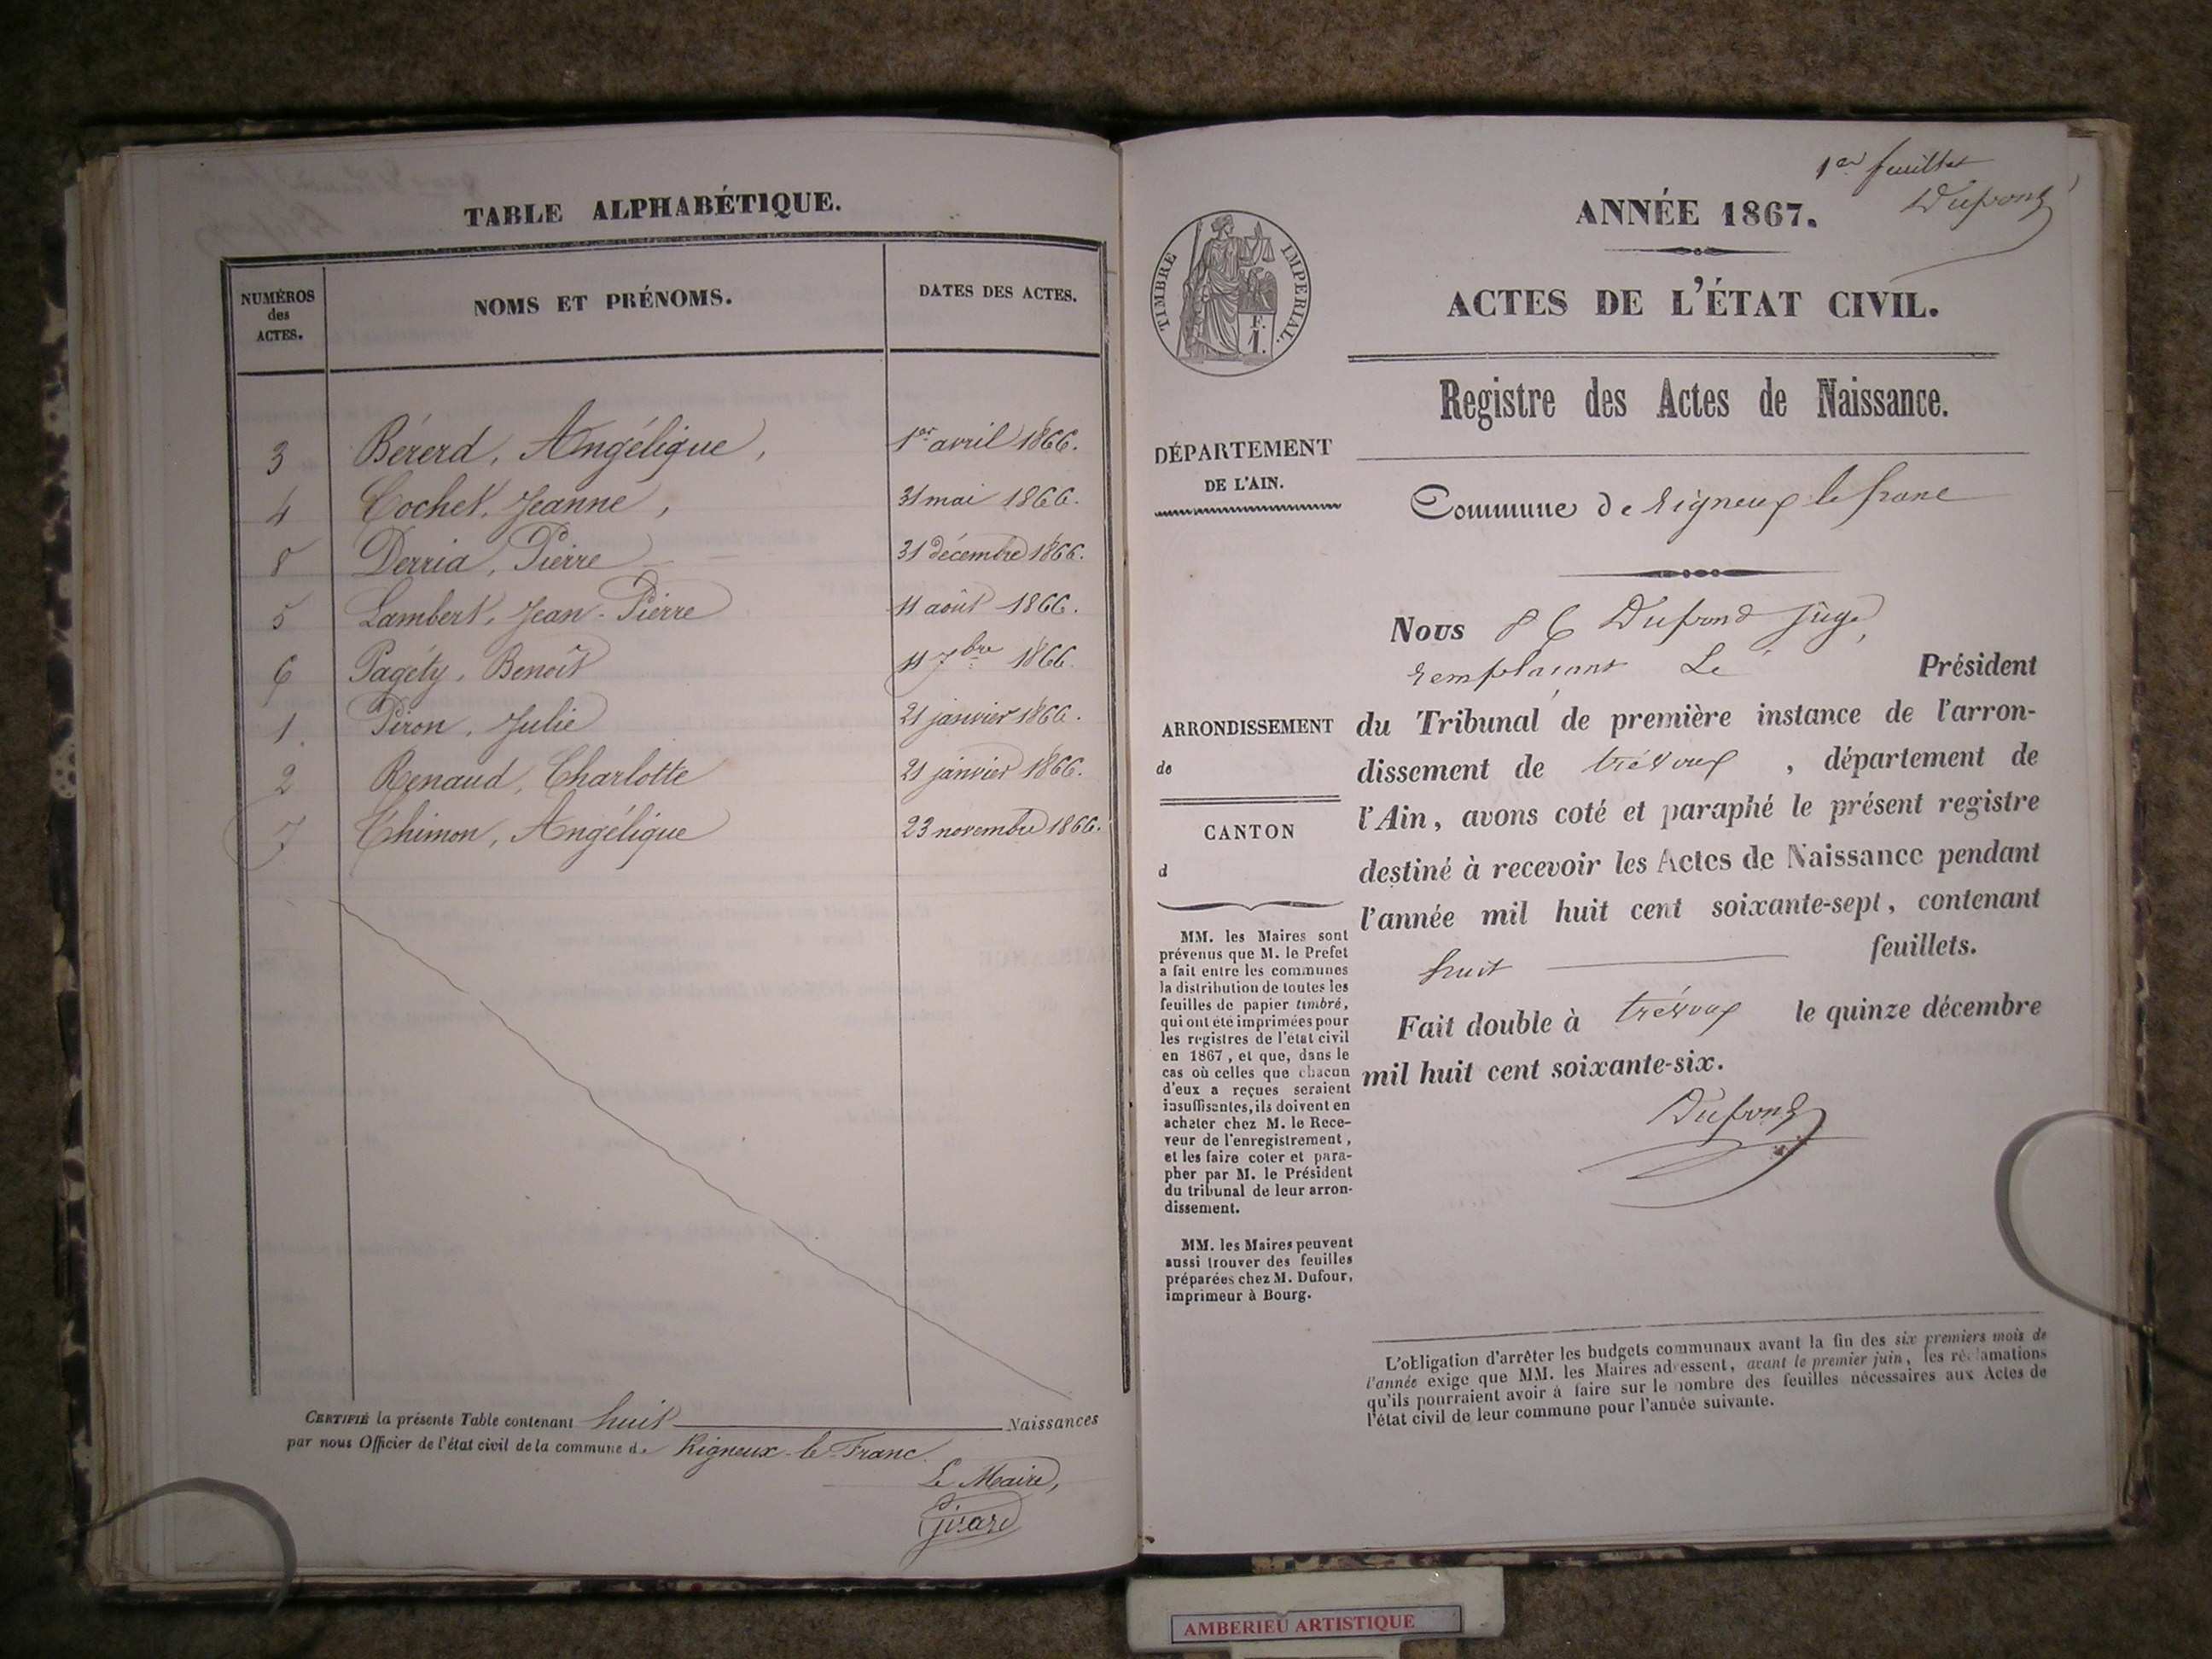 TABLE ALPHABÉTIQUE.
NUMÉROS des ACTES.
NOMS ET PRÉNOMS.
DATES DES ACTES.
3 Bérerd, Angélique, 1er avril 1866.
4 Cochet, Jeanne, 31 mai 1866.
8 Derria, Pierre 31 décembre 1866.
5 Lambert, Jean-Pierre 11 août 1866.
6 Pagéty, Benoît 11 7bre 1866.
1. Piron, Julie 21 janvier 1866.
2 Renaud, Charlotte 21 janvier 1866.
7 Thimon, Angélique 23 novembre 1866.
CERTIFIÉ la présente Table contenant huit Naissances
par nous Officier de l'état civil de la commune de Rigneux-le-Franc.
Le Maire,
Girard
1er feuillet
Dupond
ANNÉE 1867.
TIMBRE IMPERIAL.
F.
1.
ACTES DE L'ÉTAT CIVIL.
Registre des Actes de Naissance.
DÉPARTEMENT
DE L'AIN.
Commune de Rigneux le franc
Nous Dupond Juge,
remplaçant Le Président
ARRONDISSEMENT
de
CANTON
d
du Tribunal de première instance de l'arron-
dissement de trévoux , département de
l'Ain, avons coté et paraphé le présent registre
destiné à recevoir les Actes de Naissance pendant
l'année mil huit cent soixante-sept, contenant
huit feuillets.
Fait double à trévoux le quinze décembre
mil huit cent soixante-six.
Dupond
MM. les Maires sont
prévenus que M. le Prefet
a fait entre les communes
la distribution de toutes les
feuilles de papier timbré,
qui ont été imprimées pour
les registres de l'état civil
en 1867, et que, dans le
cas où celles que chacun
d'eux a reçues seraient
insuffisantes, ils doivent en
acheter chez M. le Rece-
veur de l'enregistrement,
et les faire coter et para-
pher par M. le Président
du tribunal de leur arron-
dissement.
MM. les Maires peuvent
aussi trouver des feuilles
préparées chez M. Dufour,
imprimeur à Bourg.
L'obligation d'arrêter les budgets communaux avant la fin des six premiers mois de
l'année exige que MM. les Maires adressent, avant le premier juin, les réclamations
qu'ils pourraient avoir à faire sur le nombre des feuilles nécessaires aux Actes de
l'état civil de leur commune pour l'année suivante.
AMBERIEU ARTISTIQUE